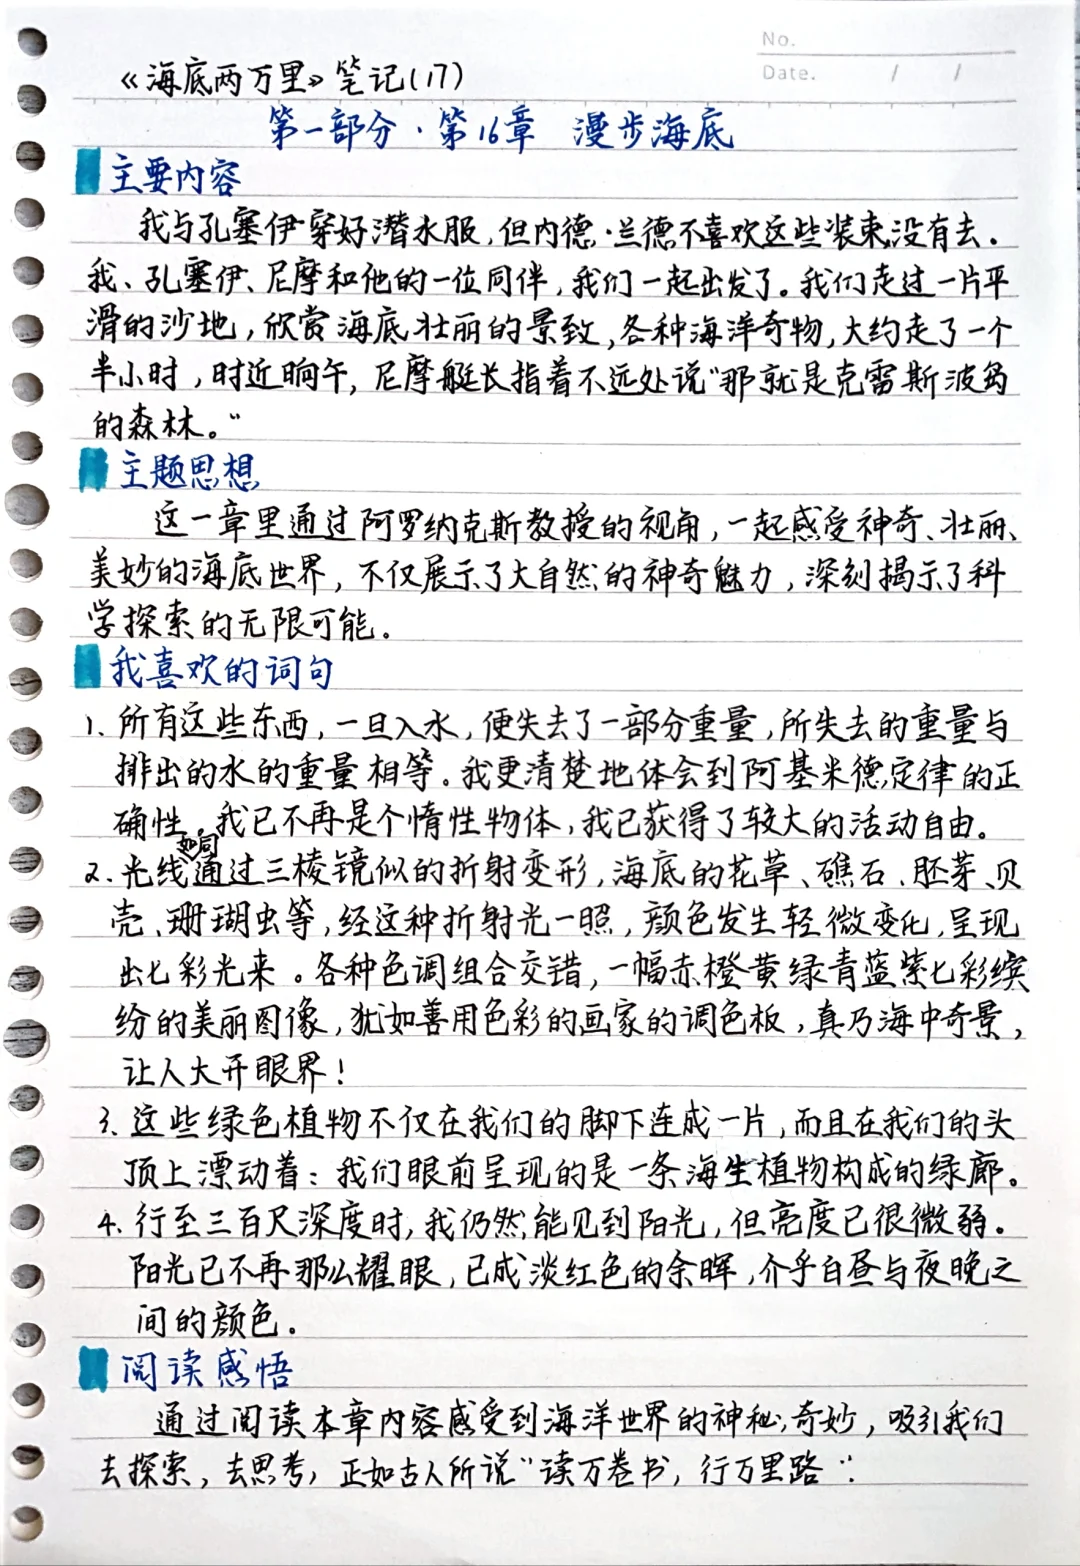 No.
Date. / /
《海底两万里》笔记(17)
第一部分·第16章 漫步海底
主要内容
我与孔塞伊穿好潜水服,但内德·兰德不喜欢这些装束没有去。
我、孔塞伊、尼摩和他的一位同伴,我们一起出发了。我们走过一片平
滑的沙地,欣赏海底壮丽的景致,各种海洋奇物,大约走了一个
半小时,时近晌午,尼摩艇长指着不远处说“那就是克雷斯波岛
的森林。”
主题思想
这一章里通过阿罗纳克斯教授的视角,一起感受神奇、壮丽、
美妙的海底世界,不仅展示了大自然的神奇魅力,深刻揭示了科
学探索的无限可能。
我喜欢的词句
1.所有这些东西,一旦入水,便失去了一部分重量,所失去的重量与
排出的水的重量相等。我更清楚地体会到阿基米德定律的正
确性。我已不再是个惰性物体,我已获得了较大的活动自由。
2.光线如同通过三棱镜似的折射变形,海底的花草、礁石、胚芽、贝
壳、珊瑚虫等,经这种折射光一照,颜色发生轻微变化,呈现
出七彩光来。各种色调组合交错,一幅赤橙黄绿青蓝紫七彩缤
纷的美丽图像,犹如善用色彩的画家的调色板,真乃海中奇景,
让人大开眼界!
3.这些绿色植物不仅在我们的脚下连成一片,而且在我们的头
顶上漂动着:我们眼前呈现的是一条海生植物构成的绿廊。
4.行至三百尺深度时,我仍然能见到阳光,但亮度已很微弱。
阳光已不再那么耀眼,已成淡红色的余晖,介乎白昼与夜晚之
间的颜色。
阅读感悟
通过阅读本章内容感受到海洋世界的神秘,奇妙,吸引我们
去探索,去思考,正如古人所说“读万卷书,行万里路”.